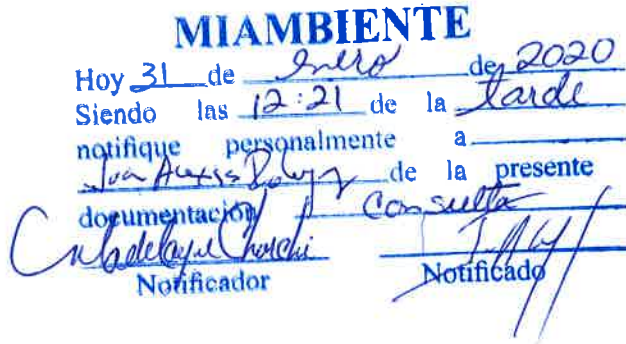 MIAMBIENTE
Hoy 31 de Enero de 2020
Siendo las 12:21 de la tarde
notifique personalmente a
de la presente
documentación Consulta
Notificador Notificado